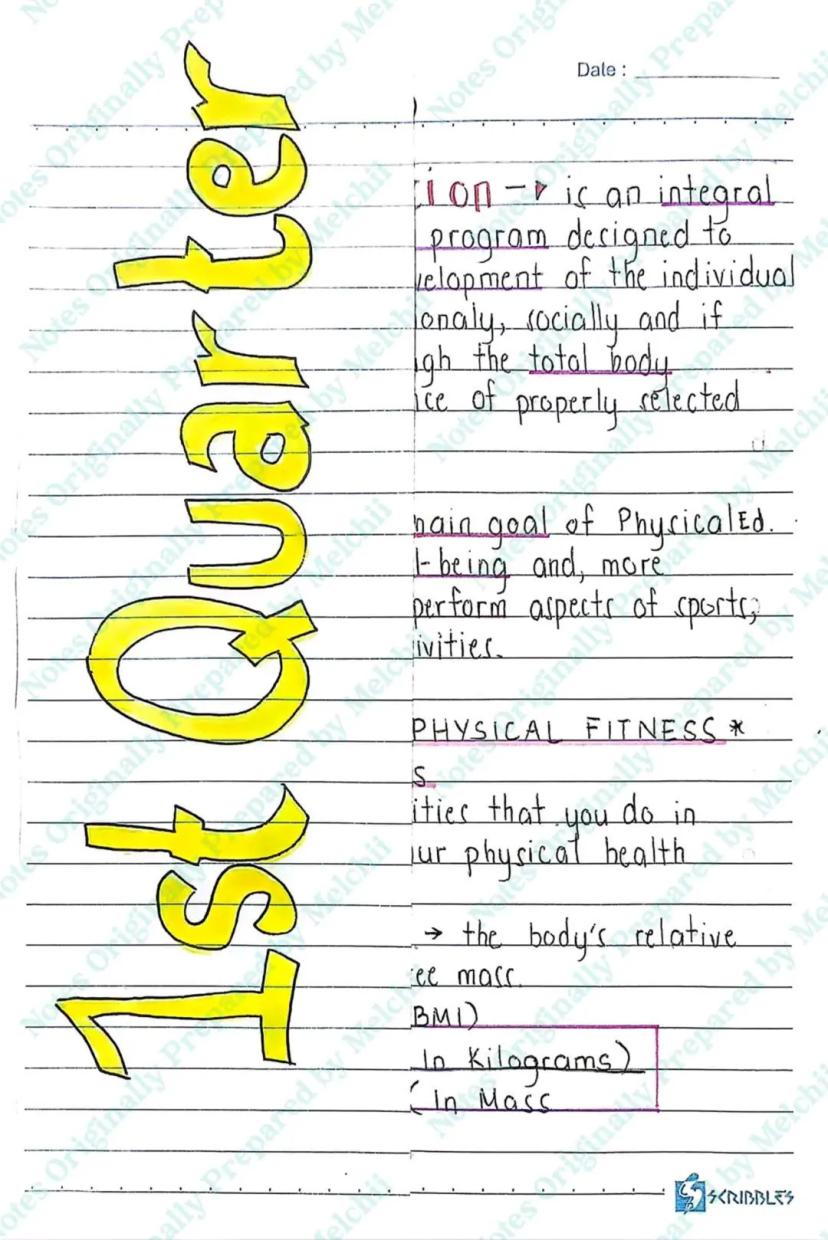 1st Quarter
Date :
ion → is an integral
program designed to
elopment of the individual
onaly, socially and if
gh the total body
ce of properly selected
main goal of Physical Ed.
l-being and, more
perform aspects of sports,
ivities.
PHYSICAL FITNESS *
S
ities that you do in
ur physical health
→ the body's relative
ee mass.
BMI)
In Kilograms)
( In Mass
SCRIBBLES
Notes Originally Prepared by Melchii